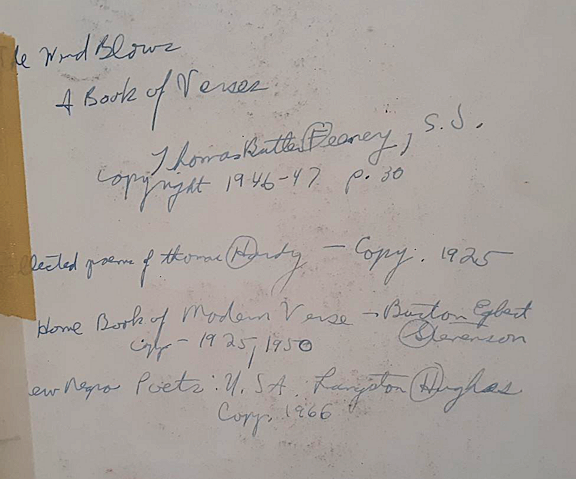 The Wind Blows
A Book of Verses
Thomas Butler Feeney, S.J.
Copyright 1946-47 p. 30
llected poems of Thomas Hardy - Copy. 1925
Home Book of Modern Verse - Burton Egbert
Stevenson
Copy - 1925, 1950
ew Negro Poets: U.SA Langston Hughes
Copy. 1966